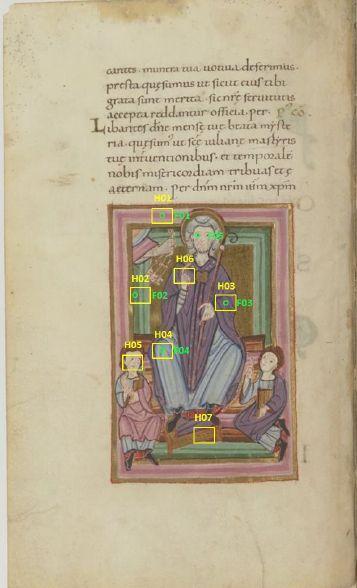 cantes. munera tua uotiua deferimus.
presta quesumus ut sicut eius tibi
grata sunt merita. sic nrē seruitutis
accepta reddantur officia. per. pᵒ cō.
Libantes dn̄e mense tue beata myste
ria. quesumus ut scī iuliani martyris
tue inuentionibus. et temporale
nobis misericordiam tribuas et
aeternam. per dnm nrm ihm xpm
H01
F01
F05
H06
H02
F02
H03
F03
H04
F04
H05
H07